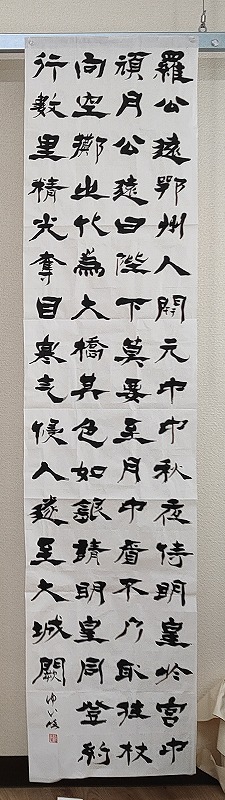 羅公遠鄂州人開元中中秋夜侍明皇於宮中
頑月公遠曰陛下莫要至月中看不乃取拄杖
向空擲之化為大橋其色如銀請明皇同登約
行數里精光奪目寒气侵人遂至大城闕